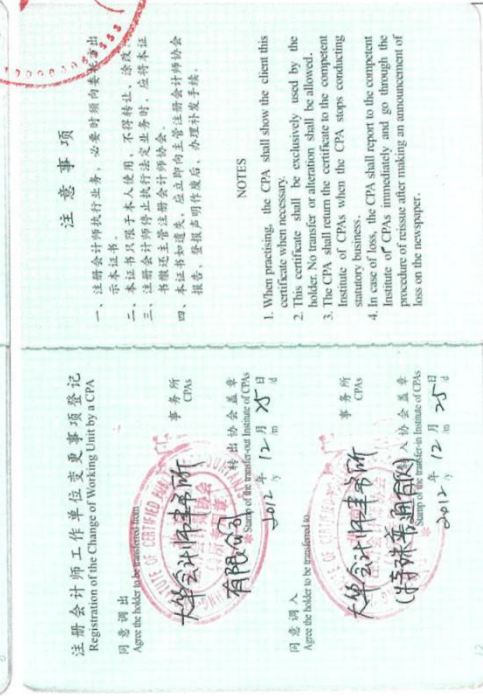 注册会计师工作单位变更事项登记
Registration of the Change of Working Unit by a CPA
同意调出
Agree the holder to be transferred from
大华会计师事务所
有限公司
事务所
CPAs
转出协会盖章
Stamp of the transfer-out Institute of CPAs
2012年 12月 25日
/y /m /d
同意调入
Agree the holder to be transferred to
大华会计师事务所
(特殊普通合伙)
事务所
CPAs
转入协会盖章
Stamp of the transfer-in Institute of CPAs
2012年 12月 25日
/y /m /d
12
注意事项
一、注册会计师执行业务，必要时须向委托方出
示本证书。
二、本证书只限于本人使用，不得转让、涂改。
三、注册会计师停止执行法定业务时，应将本证
书缴还主管注册会计师协会。
四、本证书如遗失，应立即向主管注册会计师协会
报告，登报声明作废后，办理补发手续。
NOTES
1. When practising, the CPA shall show the client this
certificate when necessary.
2. This certificate shall be exclusively used by the
holder. No transfer or alteration shall be allowed.
3. The CPA shall return the certificate to the competent
Institute of CPAs when the CPA stops conducting
statutory business.
4. In case of loss, the CPA shall report to the competent
Institute of CPAs immediately and go through the
procedure of reissue after making an announcement of
loss on the newspaper.